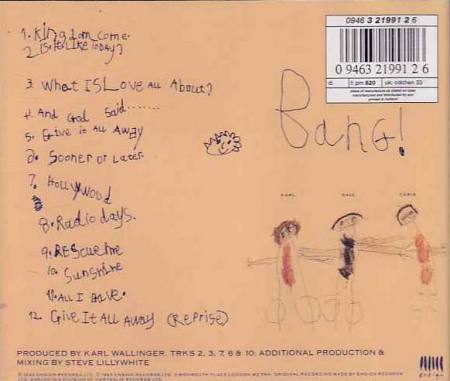 1. Kingdom Come.
2 Is it Like Today?
3. What IS Love All About?
4. And God Said......
5. Give it All Away
6. Sooner or Later
7. Hollywood
8. Radio days.
9. RESCUE me
10. Sunshine
11. All I Gave.
12. Give It All Away (Reprise)
BANG!
0946 3 21991 2 6
0 09463 21991 2 6
KARL
CHRIS
PRODUCED BY KARL WALLINGER. TRKS 2, 3, 7, 8 & 10: ADDITIONAL PRODUCTION &
MIXING BY STEVE LILLYWHITE